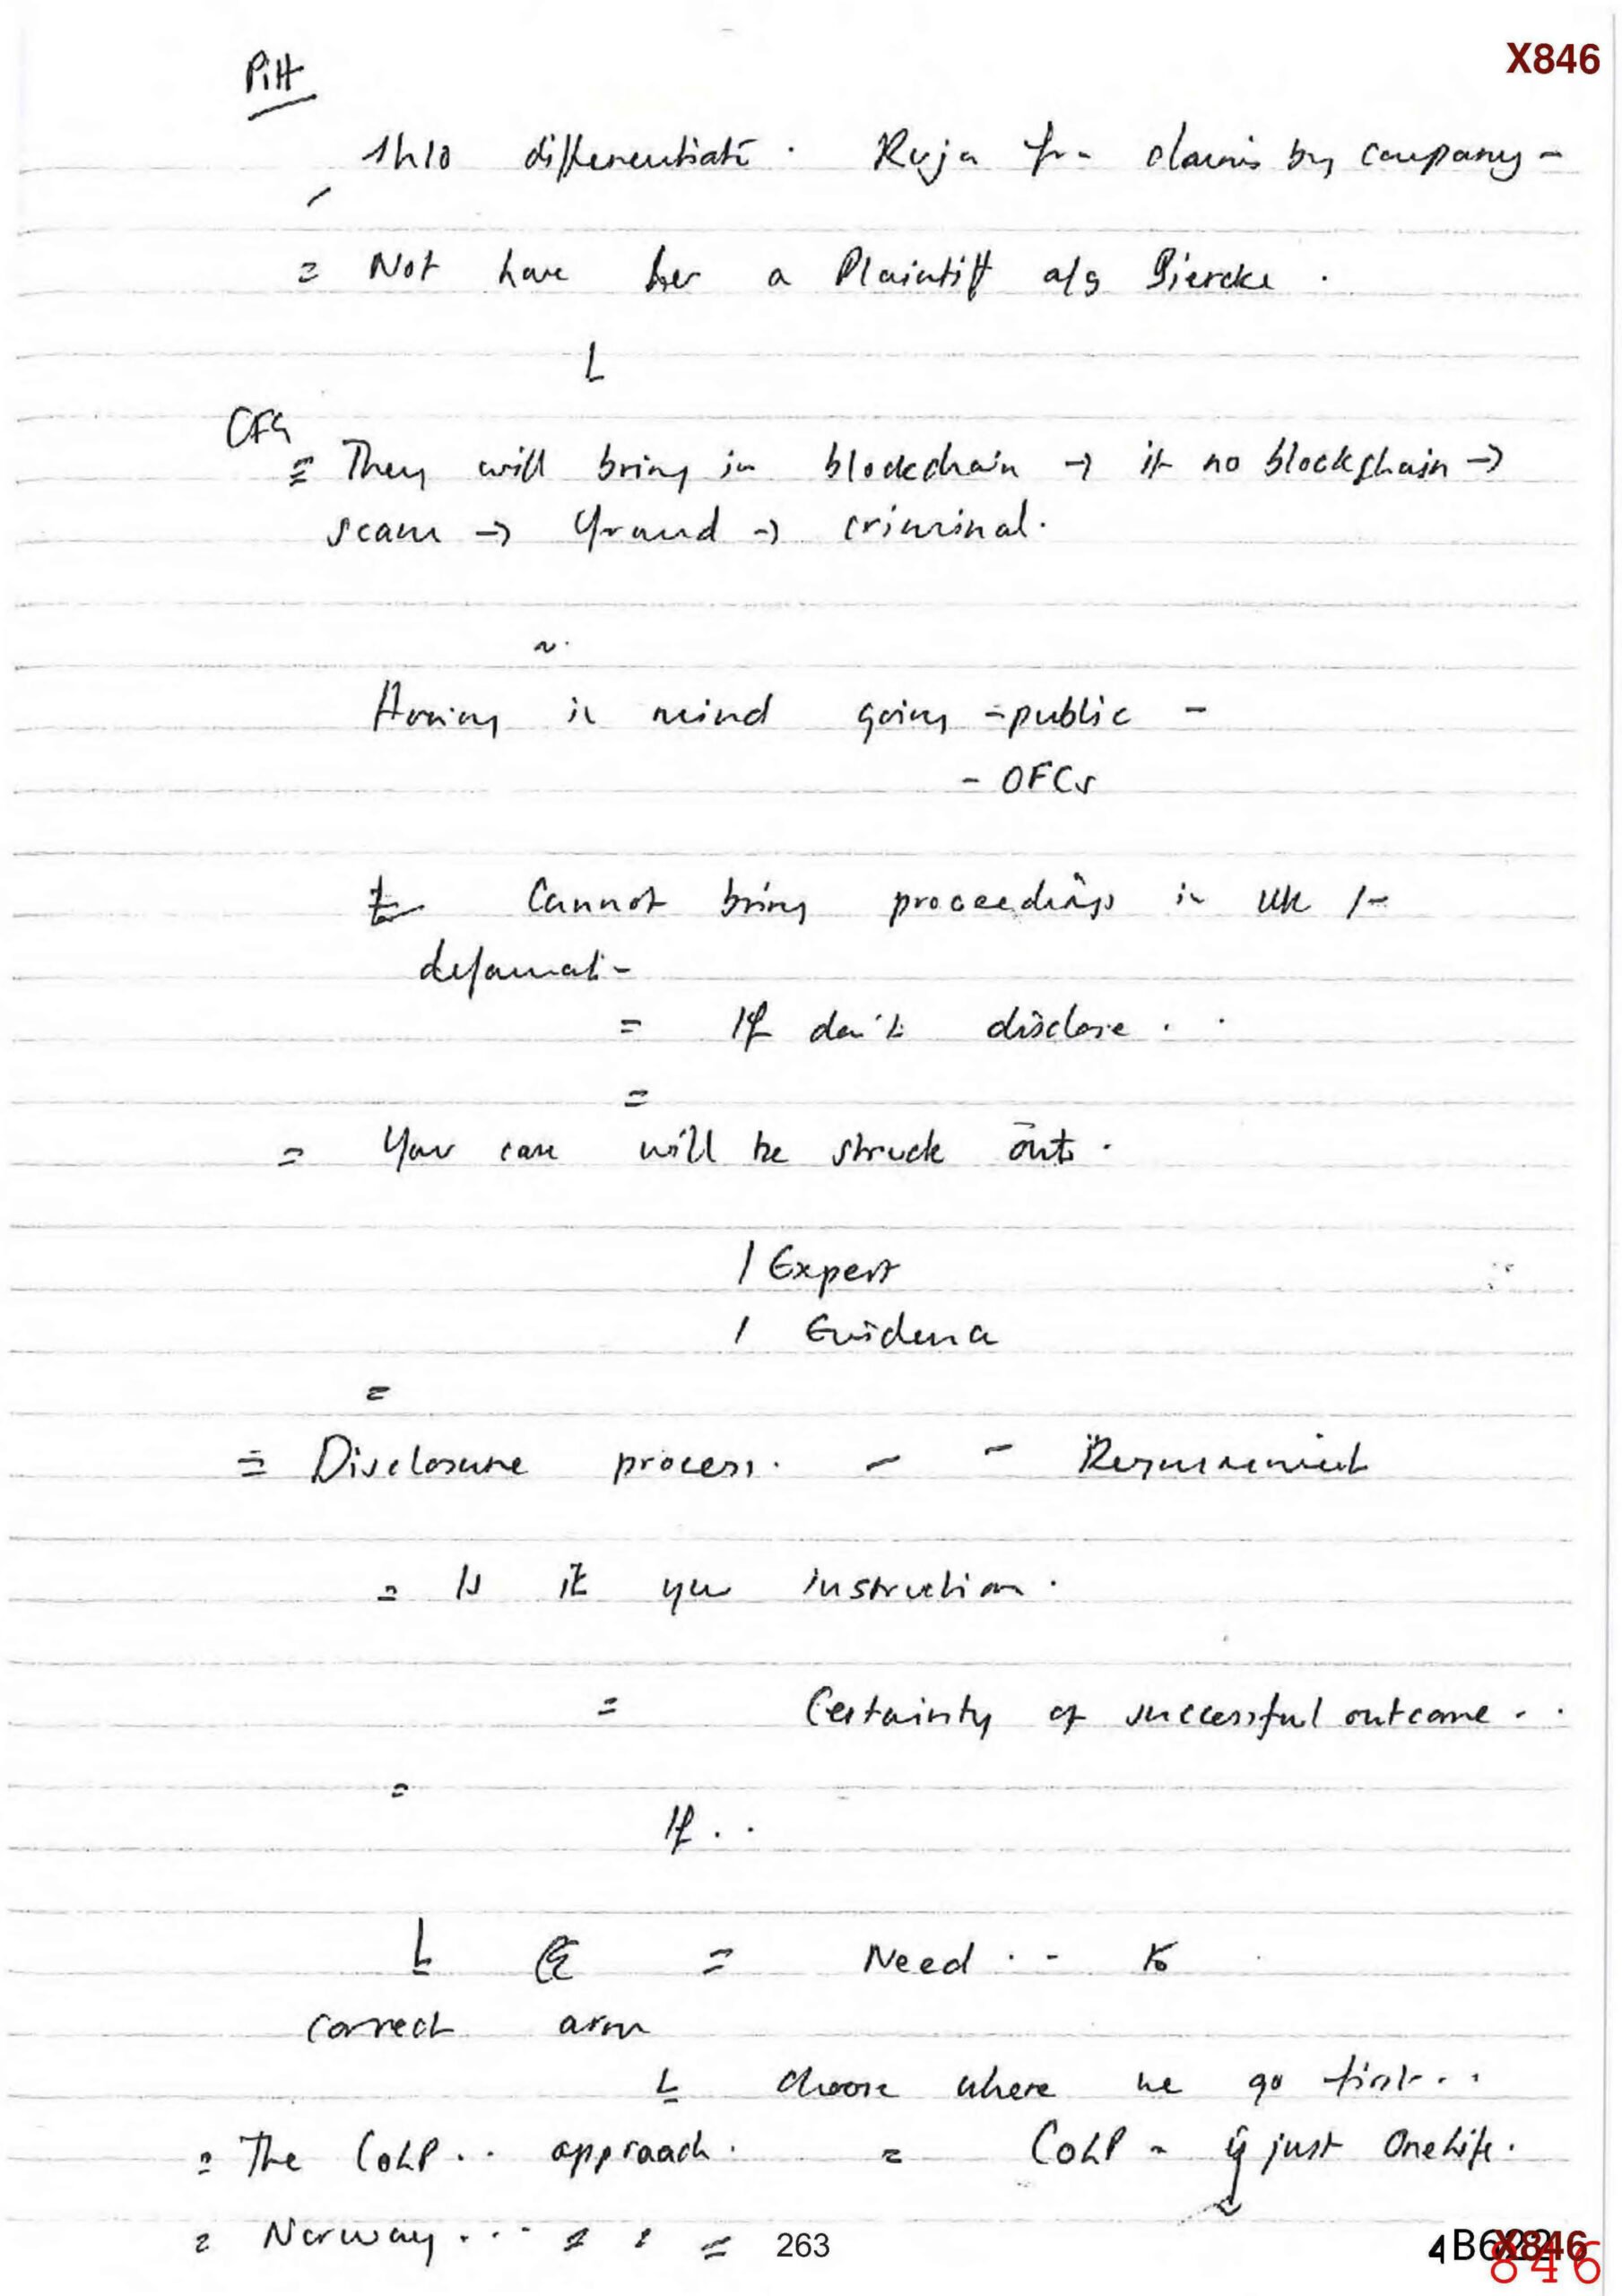 X846
Pitt
Shld differentiate. Ruja from claims by company -
= Not have her a Plaintiff a/g Bjercke.
L
CFG
= They will bring in blockchain → if no blockchain →
scam → fraud → criminal.
Having in mind going - public -
- OFCs
Cannot bring proceedings in UK for
defamation
= If don't disclose . .
=
= Your case will be struck out.
/ Expert
/ Evidence
=
= Disclosure process. - - Requirement
= Is it your instruction.
= Certainty of successful outcome . .
=
If . .
L = Need . . - to
correct arm
L choose where we go first . .
= The CoLP . . approach. = CoLP - just OneLife.
= Norway . . .
263
X846
846